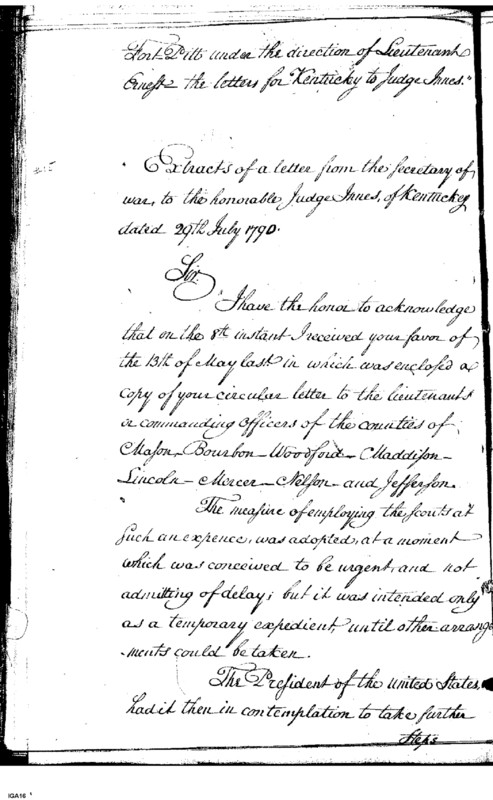 Fort Pitt under the direction of Lieutenant
Ernest the letters for Kentucky to Judge Innes."
"Extracts of a letter from the Secretary of
war, to the honorable Judge Innes, of Kentuckey
dated 29th July 1790.
Sir,
"I have the honor to acknowledge
that on the 8th instant I received your favor of
the 13th of May last in which was enclosed a
copy of your circular letter to the lieutenants
or commanding officers of the counties of
Mason_Bourbon_Woodford_Maddison_
Lincoln_Mercer_Nelson_and Jefferson.
" The measure of employing the scouts at
such an expence, was adopted, at a moment
which was conceived to be urgent, and not
admitting of delay; but it was intended only
as a temporary expedient, until other arrange
-ments could be taken.
The President of the united States,
had it then in contemplation to take further
Steps
IGA16 1